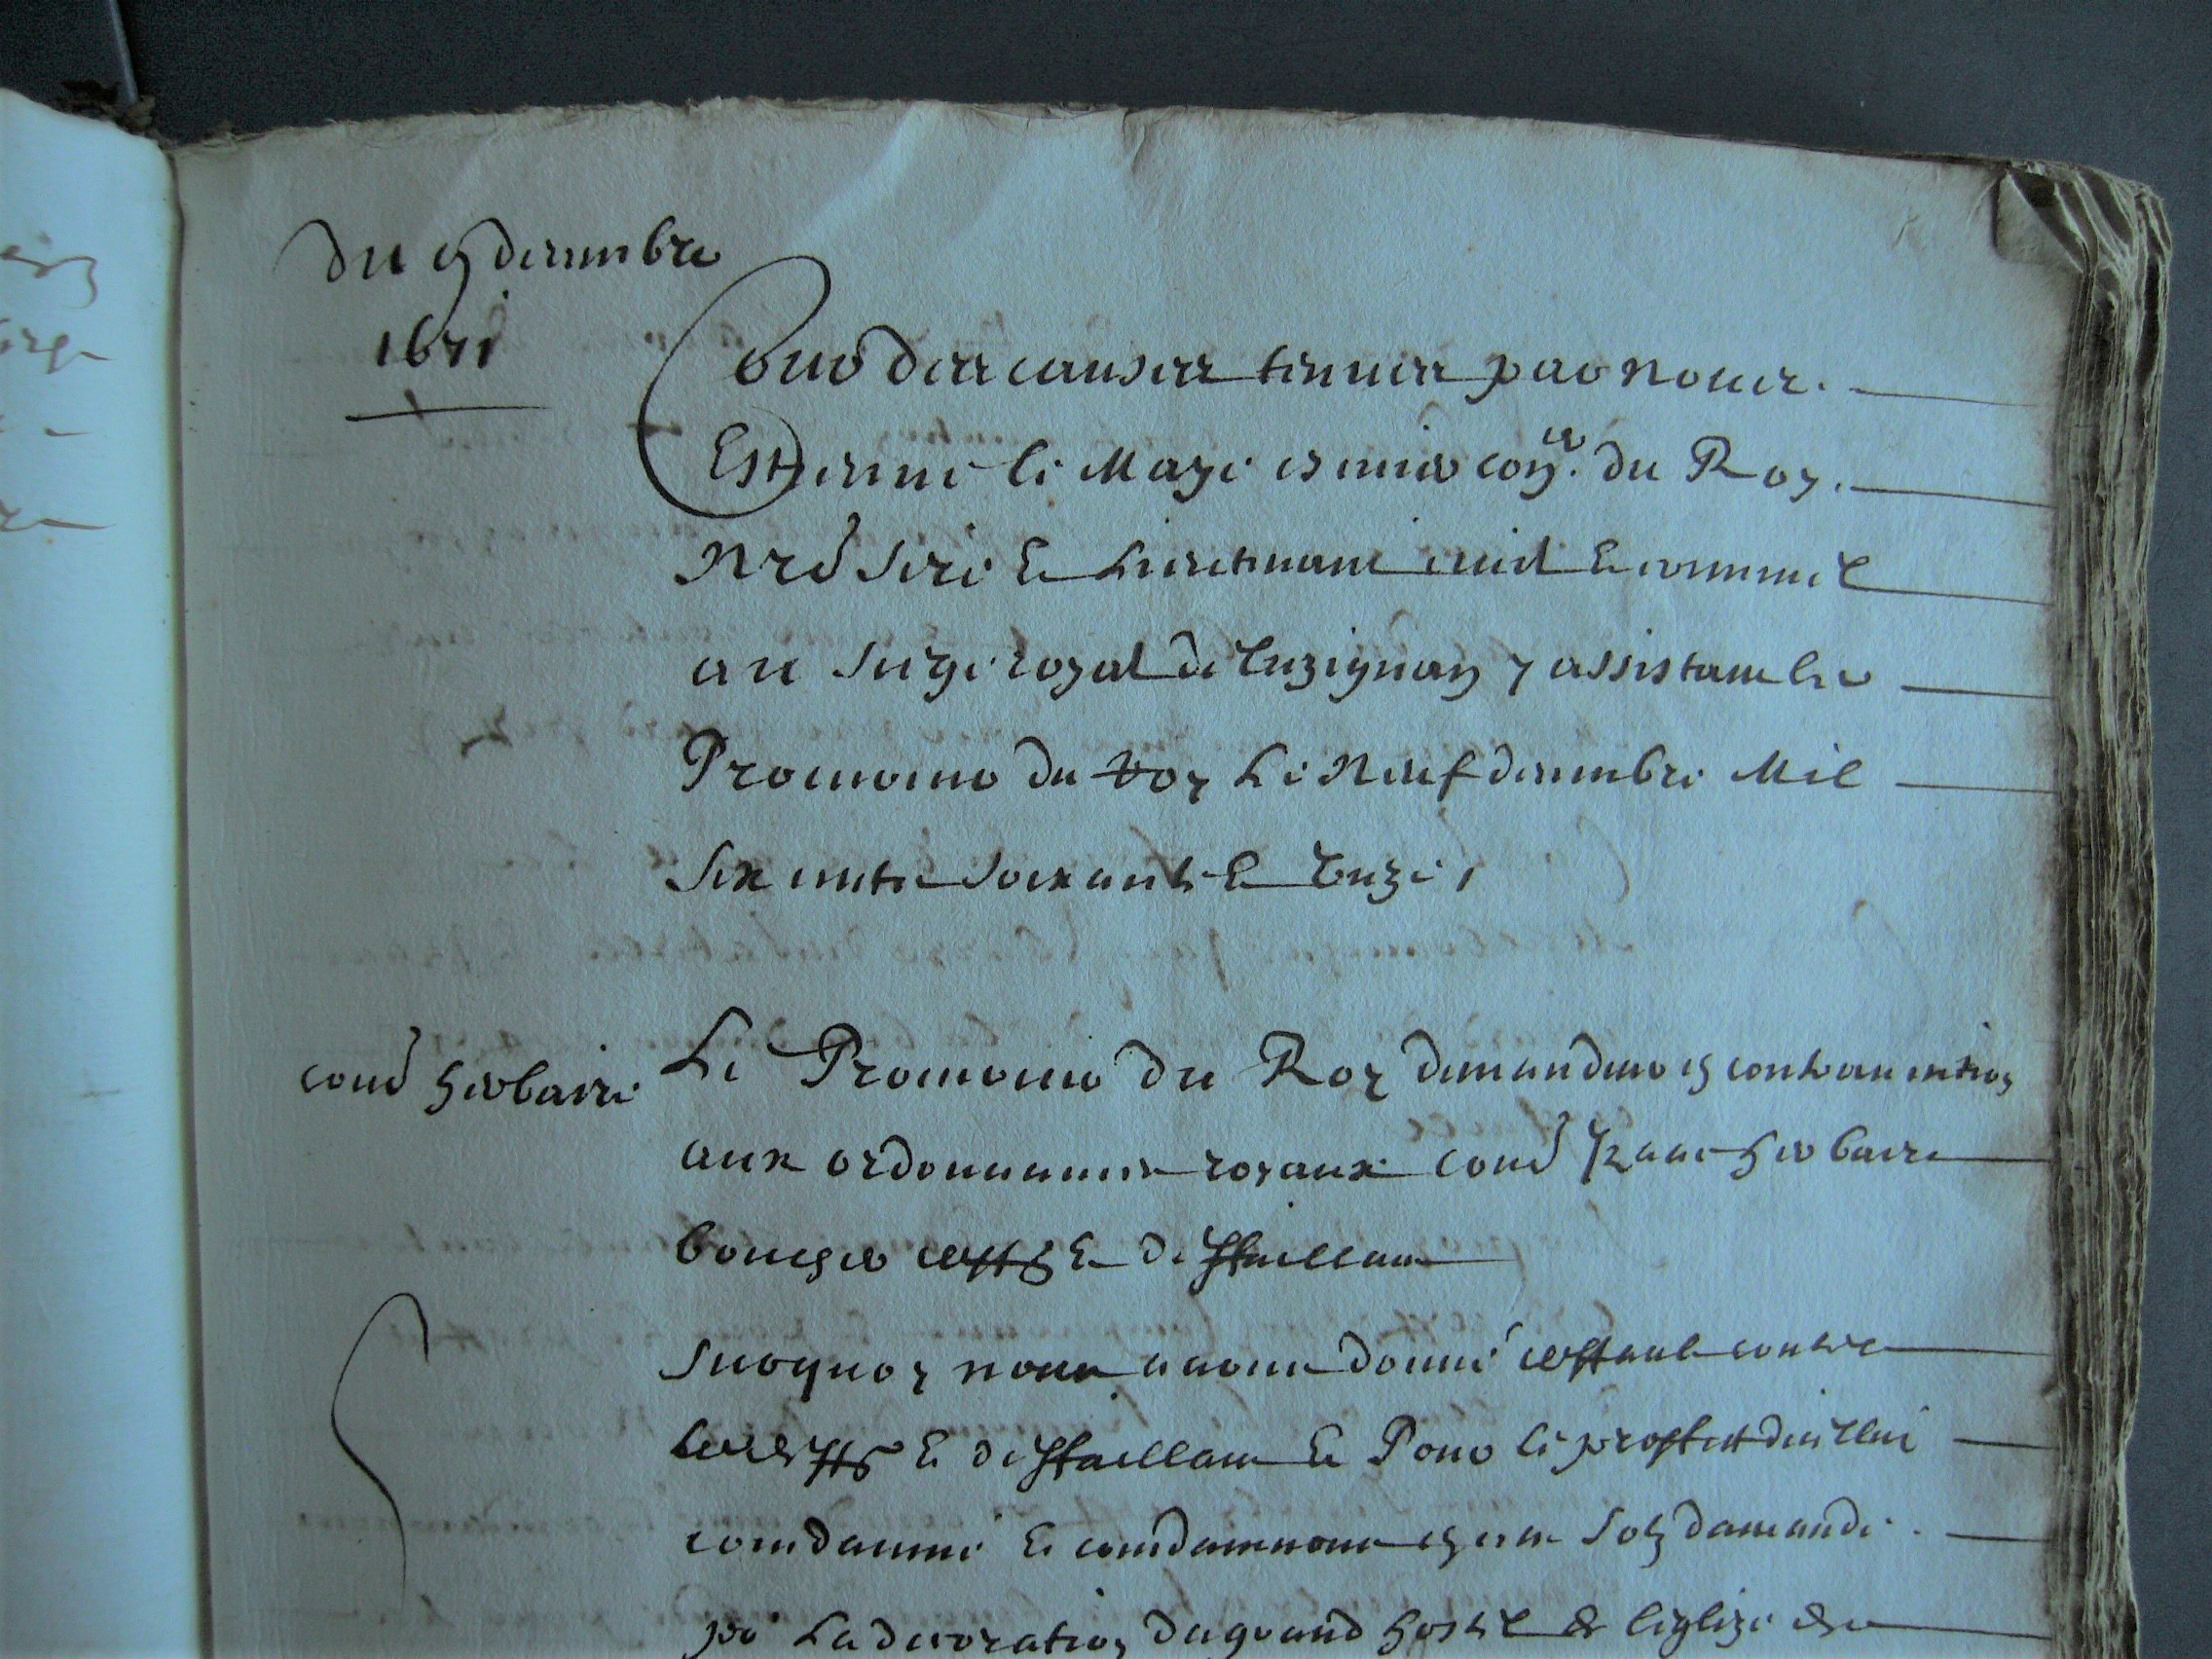 du 9 decembre
1671
Cour des causes tenues par nous
Estienne le Maye escuier con.er du Roy
Nre sire Et Lieutenant civil Et criminel
au siege royal de Luzignan y assistant le
Procureur du Roy Le Neuf decembre Mil
Six cents soixante Et Unze
contre herbaire
Le Procureur du Roy demandeur en contravention
aux ordonnances royaux contre Izaac herbaire
boucher deff.r Et deffaillant
Surquoy nous avons donné deffault contre
led deff.r Et deffaillant Et Pour le proffict diceluy
comdamné Et comdamnons en sols damande
po La decoration du grand hostel de leglize de